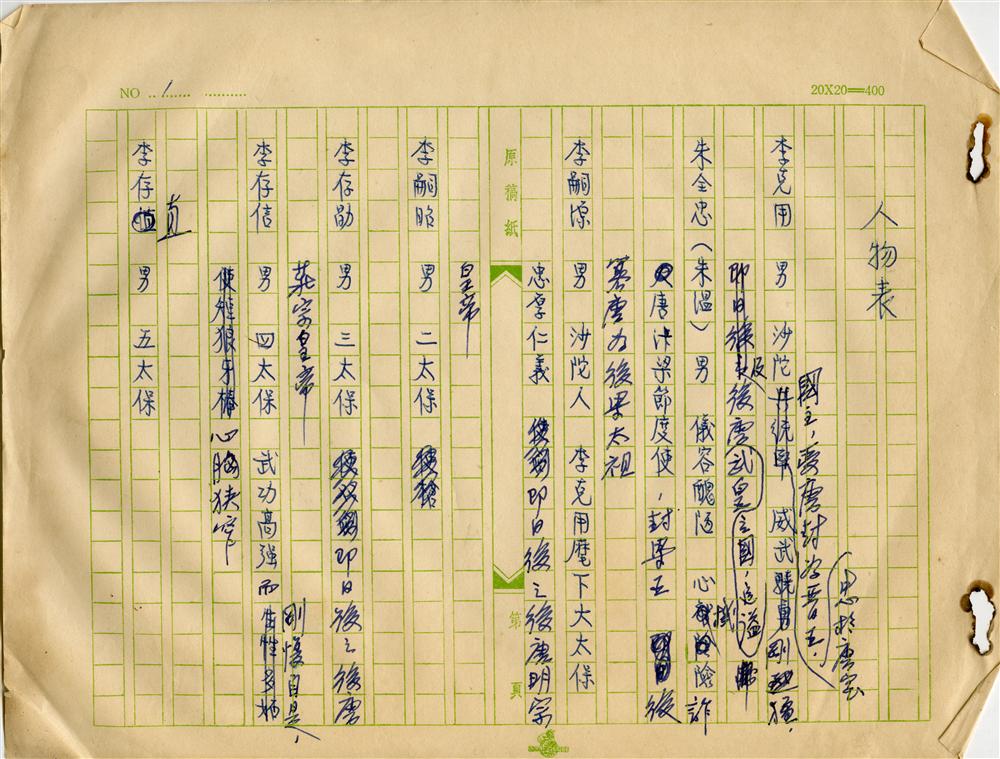 NO 1
20X20=400
人物表
忠於唐室
國主，受唐封為晉王．
李克用 男 沙陀 威武 剛
即日後 及後唐武皇立國，追謚
朱全忠（朱溫） 男 儀容醜陋 心 險詐
唐汴梁節度使，封梁王 後
篡唐為後梁太祖
李嗣源 男 沙陀人 李克用麾下大太保
忠孝仁義 使 即日後之後唐明宗
原稿紙
第 頁
皇帝
李嗣昭 男 二太保 使槍
李存勗 男 三太保 即日後之後唐
莊宗皇帝
李存信 男 四太保 武功高強而 性多
剛愎自是，
使 狼牙棒 心胸狹窄
李存直 男 五太保